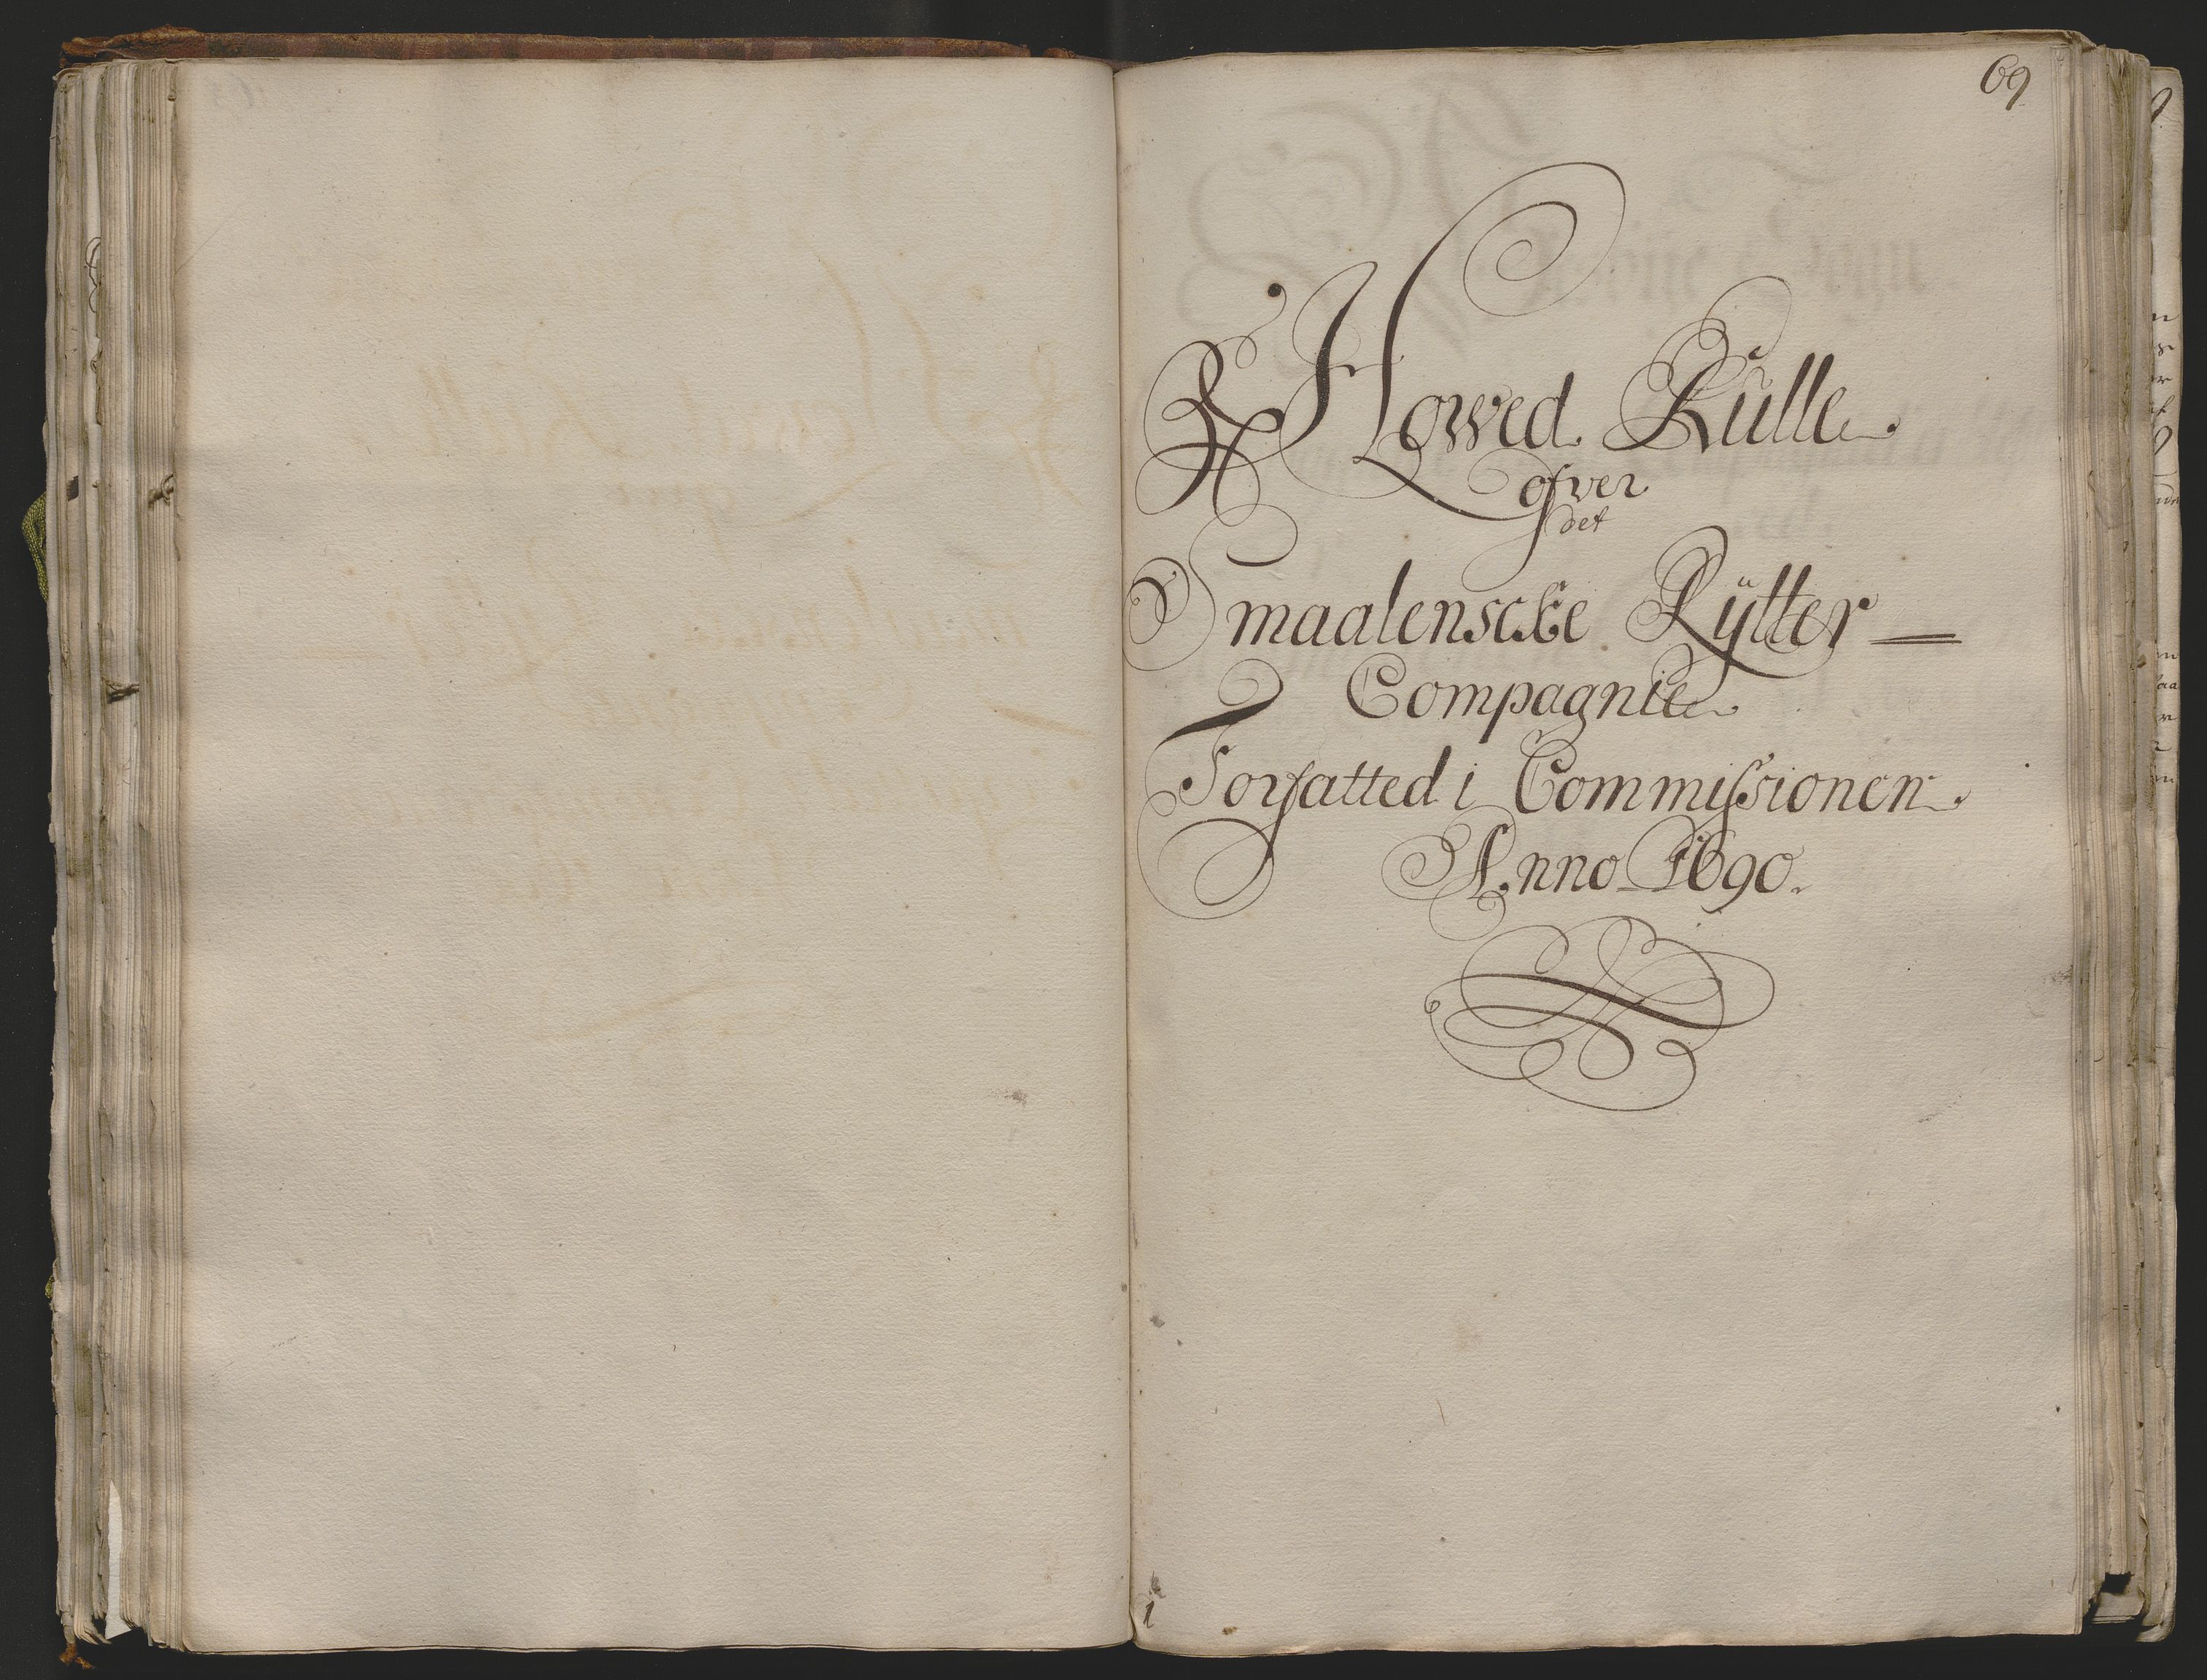 69
Howed Rulle
ofver
det
Smaalenscke Rÿtter
Compagnie
Forfatted i Commissionen
Anno 1690.
1